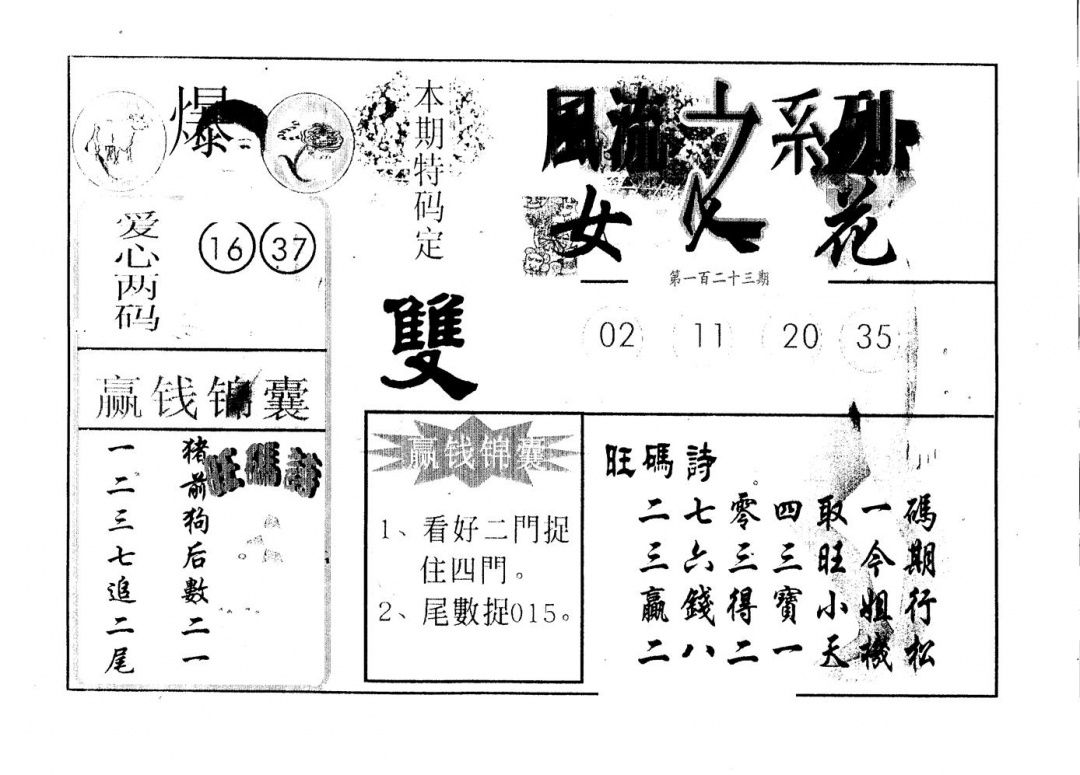 爆
本期特码定
雙
爱心两码
16 37
赢钱锦囊
猪前狗后數二一
一二三七追二尾
旺碼詩
風流之系列
女人花
第一百二十三期
02 11 20 35
赢钱锦囊
1、看好二門捉
住四門。
2、尾數捉015。
旺碼詩
二七零四取一碼
三六三三旺今期
贏錢得寶小姐行
二八二一天機松